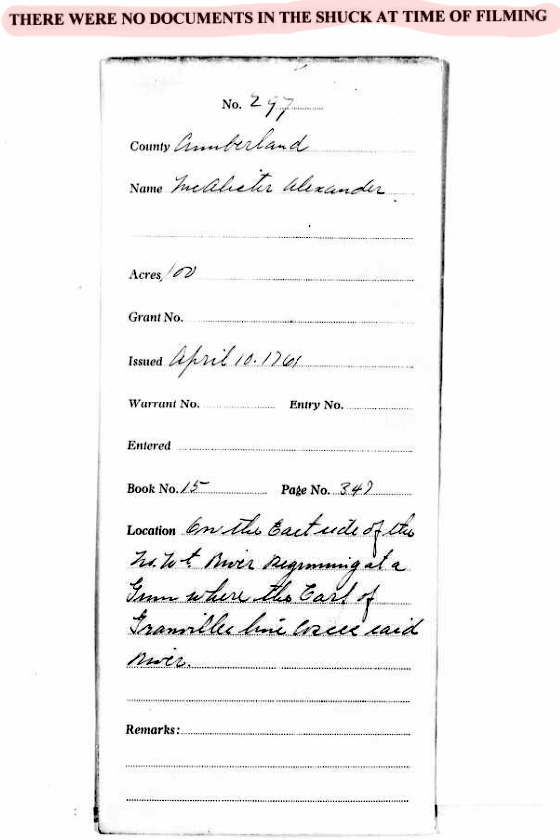 THERE WERE NO DOCUMENTS IN THE SHUCK AT TIME OF FILMING
No. 297
County Cumberland
Name McAlister Alexander
Acres 100
Grant No.
Issued April 10. 1761
Warrant No. Entry No.
Entered
Book No. 15 Page No. 347
Location On the East side of the
No. Wt. River Beginning at a
Gum where the Earl of
Granvilles line said
River.
Remarks: